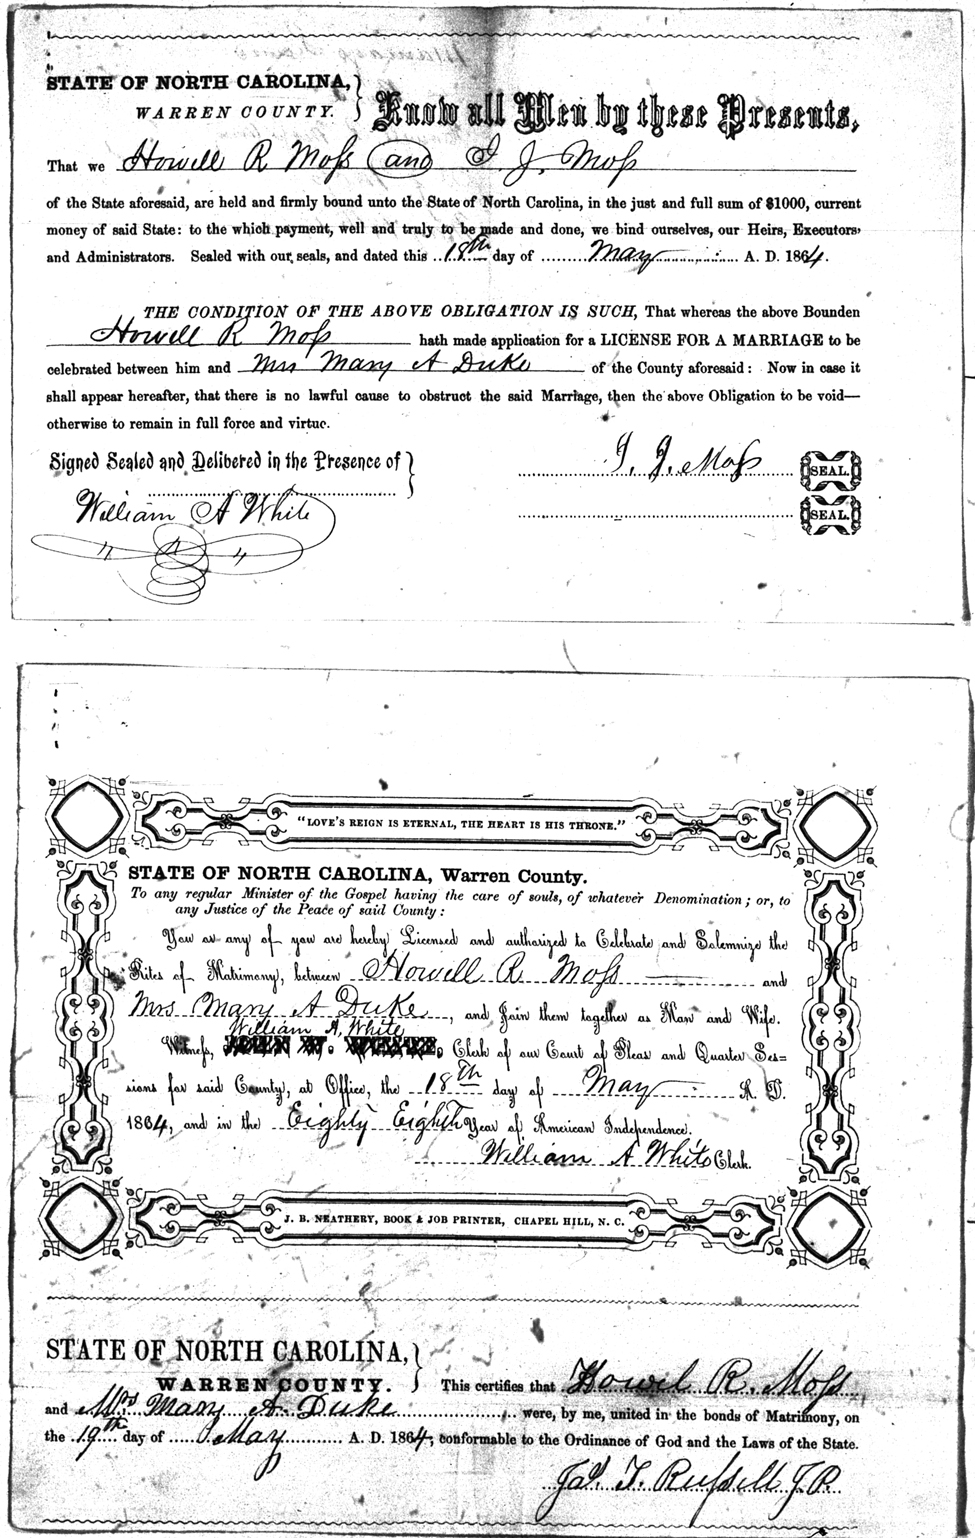 STATE OF NORTH CAROLINA,
WARREN COUNTY.
Know all Men by these Presents,
That we Howell R Moss and I J. Moss
of the State aforesaid, are held and firmly bound unto the State of North Carolina, in the just and full sum of $1000, current
money of said State: to the which payment, well and truly to be made and done, we bind ourselves, our Heirs, Executors,
and Administrators. Sealed with our seals, and dated this 18th day of May A. D. 1864.
THE CONDITION OF THE ABOVE OBLIGATION IS SUCH, That whereas the above Bounden
Howell R Moss hath made application for a LICENSE FOR A MARRIAGE to be
celebrated between him and Mrs Mary A Duke of the County aforesaid: Now in case it
shall appear hereafter, that there is no lawful cause to obstruct the said Marriage, then the above Obligation to be void—
otherwise to remain in full force and virtue.
Signed Sealed and Delibered in the Presence of
I. J. Moss SEAL.
William A White
SEAL.
"LOVE'S REIGN IS ETERNAL, THE HEART IS HIS THRONE."
STATE OF NORTH CAROLINA, Warren County.
To any regular Minister of the Gospel having the care of souls, of whatever Denomination; or, to
any Justice of the Peace of said County:
You or any of you are hereby Licensed and authorized to Celebrate and Solemnize the
Rites of Matrimony, between Howell R Moss and
Mrs Mary A Duke, and Join them together as Man and Wife.
William A. White
Witness, JOHN W. WHITE, Clerk of our Court of Pleas and Quarter Ses=
sions for said County, at Office, the 18th day of May A. D.
1864, and in the Eighty Eighth Year of American Independence.
William A White Clerk.
J. B. NEATHERY, BOOK & JOB PRINTER, CHAPEL HILL, N. C.
STATE OF NORTH CAROLINA,
WARREN COUNTY.
This certifies that Howel R. Moss
and Mrs Mary A. Duke were, by me, united in the bonds of Matrimony, on
the 19th day of May A. D. 1864, conformable to the Ordinance of God and the Laws of the State.
Jas. T. Russell J.P.